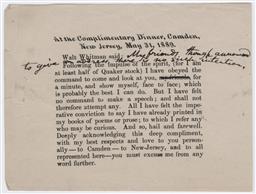 At the Complimentary Dinner, Camden,
New Jersey, May 31, 1889.
Walt Whitman said: My friends, though announced
to give an address there is no such intention.
Following the impulse of the spirit, (for I am
at least half of Quaker stock) I have obeyed the
command to come and look at you, for
a minute, and show myself, face to face; which
is probably the best I can do. But I have felt
no command to make a speech; and shall not
therefore attempt any. All I have felt the imper-
ative conviction to say I have already printed in
my books of poems or prose; to which I refer any
who may be curious. And so, hail and farewell.
Deeply acknowledging this deep compliment,
with my best respects and love to you person-
ally—to Camden—to New-Jersey, and to all
represented here—you must excuse me from any
word further.